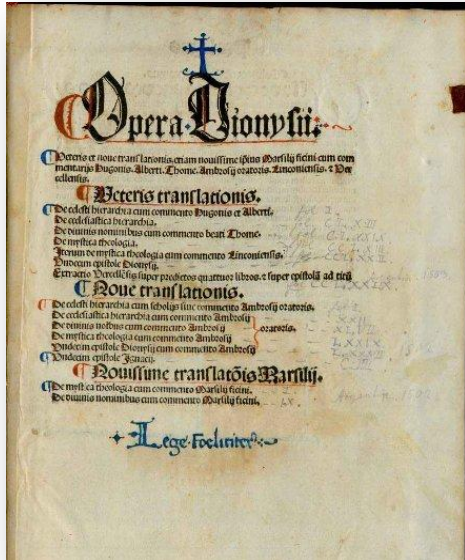 Opera Dionysii:
Veteris et noue translationis, etiam nouissime ipsius Marsilij ficini cum com
mentarijs Hugonis, Alberti, Thome, Ambrosij oratoris, Linconiensis, et Ver
cellensis.
Veteris translationis.
De celesti hierarchia cum commento Hugonis et Alberti.
De ecclesiastica hierarchia.
De diuinis nominibus cum commento beati Thome.
De mystica theologia.
Iterum de mystica theologia cum commento Linconiensis.
Undecim epistole Dionysij.
Extractio Vercellēsis super predictos quattuor libros, et super epistolā ad titū
Noue translationis.
De celesti hierarchia cum scholijs siue commento Ambrosij oratoris.
De ecclesiastica hierarchia cum commento Ambrosij
De diuinis noībus cum commento Ambrosij oratoris.
De mystica theologia cum commento Ambrosij
Undecim epistole Dionysij cum commento Ambrosij
Undecim epistole Ignatij.
Nouissime translatōis Marsilij.
De mystica theologia cum commento Marsilij ficini.
De diuinis nominibus cum commento Marsilij ficini.
Lege Foeliciter